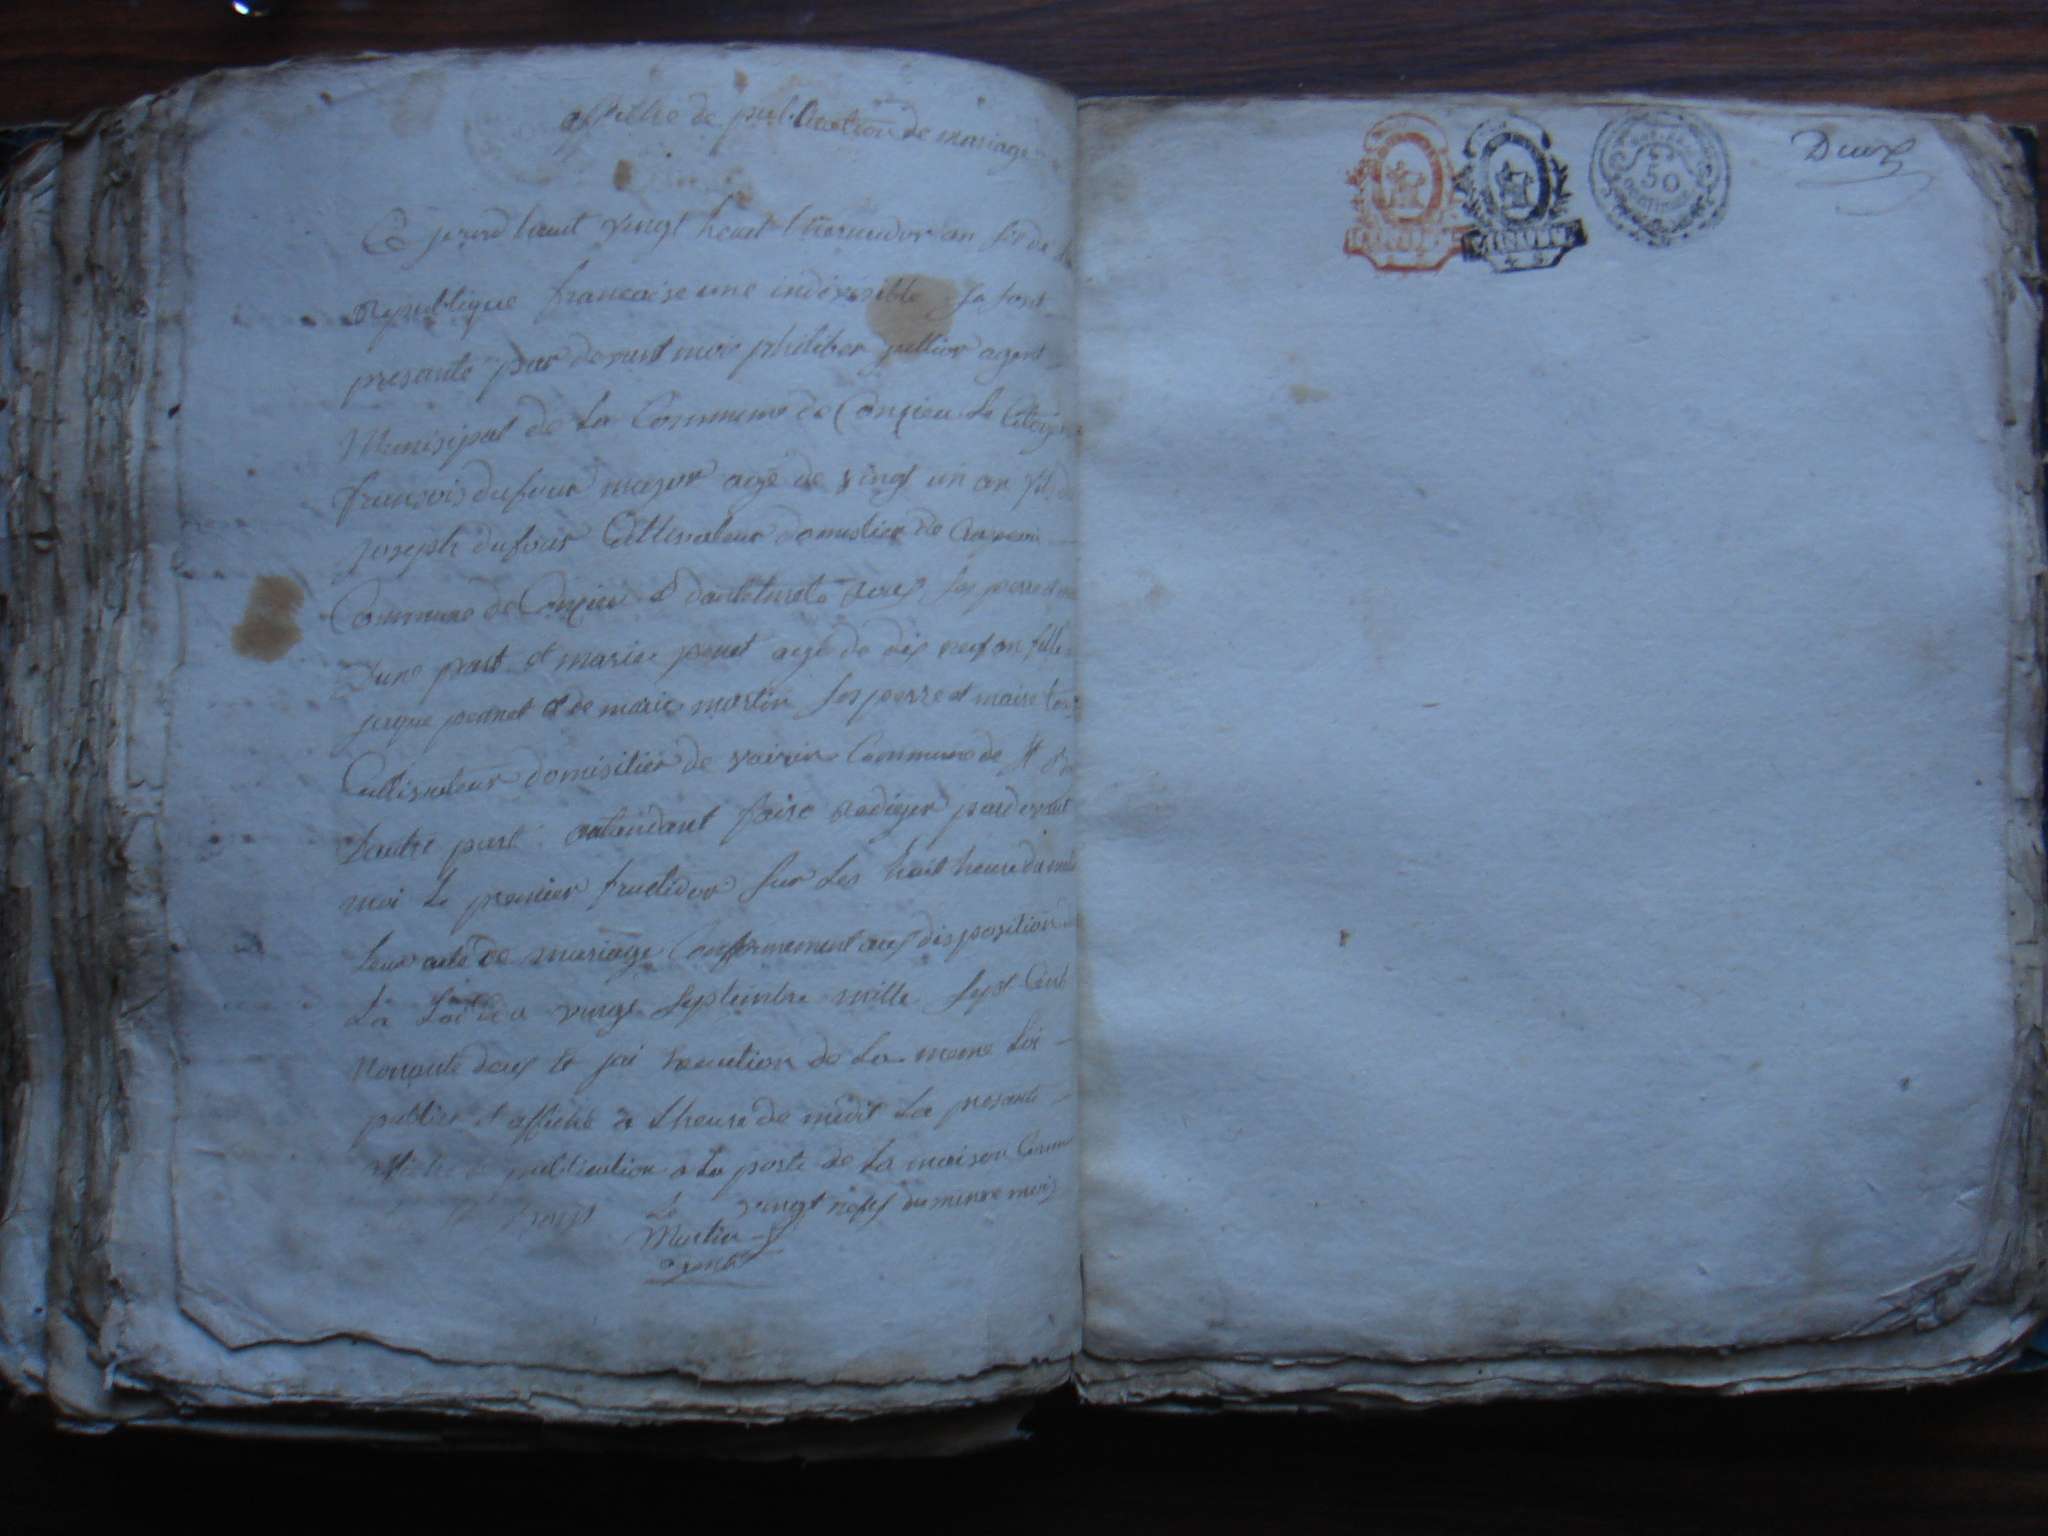 affiche de publication de mariage
Ce jourd'huit vingt heuit thermidor an de la
Republique francaise une indivisible se sont
presanté par devant moi philiber agent
Munisipal de La Commune de Conzieu Le Citoyen
françois dufour major agé de vingt un an fil de
joseph dufour Cultivateur domicilier de
Commune de Conzieu et ses perre et
dune part et marie penet agé de dix neuf an fille
jaque pennet et de marie martin ses perre et maire
Cultivateur domisilier de Commune de St
dautre part faire rediger par devant
moi Le premier fructidor sur Les huit heure du matin
Leur acte de mariage Conformement aux disposition de
La Loi du vingt Septembre mille Sept Cent
Nonante deux et jai de La meme Loi
publier et affiché a Lheure de midit La presante
affiche de publication a La porte de La maison Commune
Le vingt neuf du meme mois
Martin
agent
Deux
MINUTE
50
CENTIMES